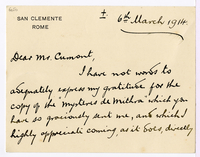 SAN CLEMENTE
ROME
± 6th March 1914.
Dear Mr. Cumont,
I have not words to
adequately express my gratitude for the
copy of the "Mystères de Mithra" which you
have so graciously sent me, and which I
highly appreciate coming, as it does, directly